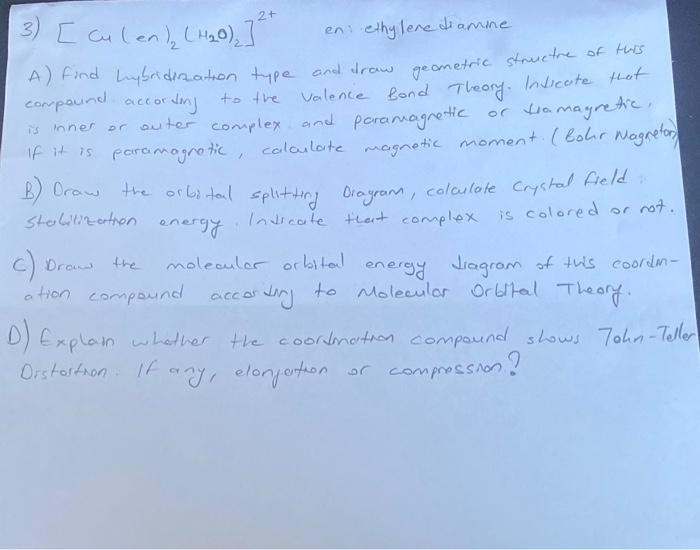 3) [Cu(en)₂(H₂O)₂]²⁺ en: ethylene diamine
A) Find hybridization type and draw geometric structre of this
compound according to the Valence Bond Theory. Indicate that
is inner or outer complex and paramagnetic or diamagnetic.
If it is paramagnetic, calculate magnetic moment. (Bohr Magneton)
B) Draw the orbital splitting Diagram, calculate Crystal field
stabilization energy. Indicate that complex is colored or not.
C) Draw the molecular orbital energy diagram of this coordin-
ation compound according to Molecular Orbital Theory.
D) Explain whether the coordination compound shows John-Teller
Distortion. If any, elongation or compression?